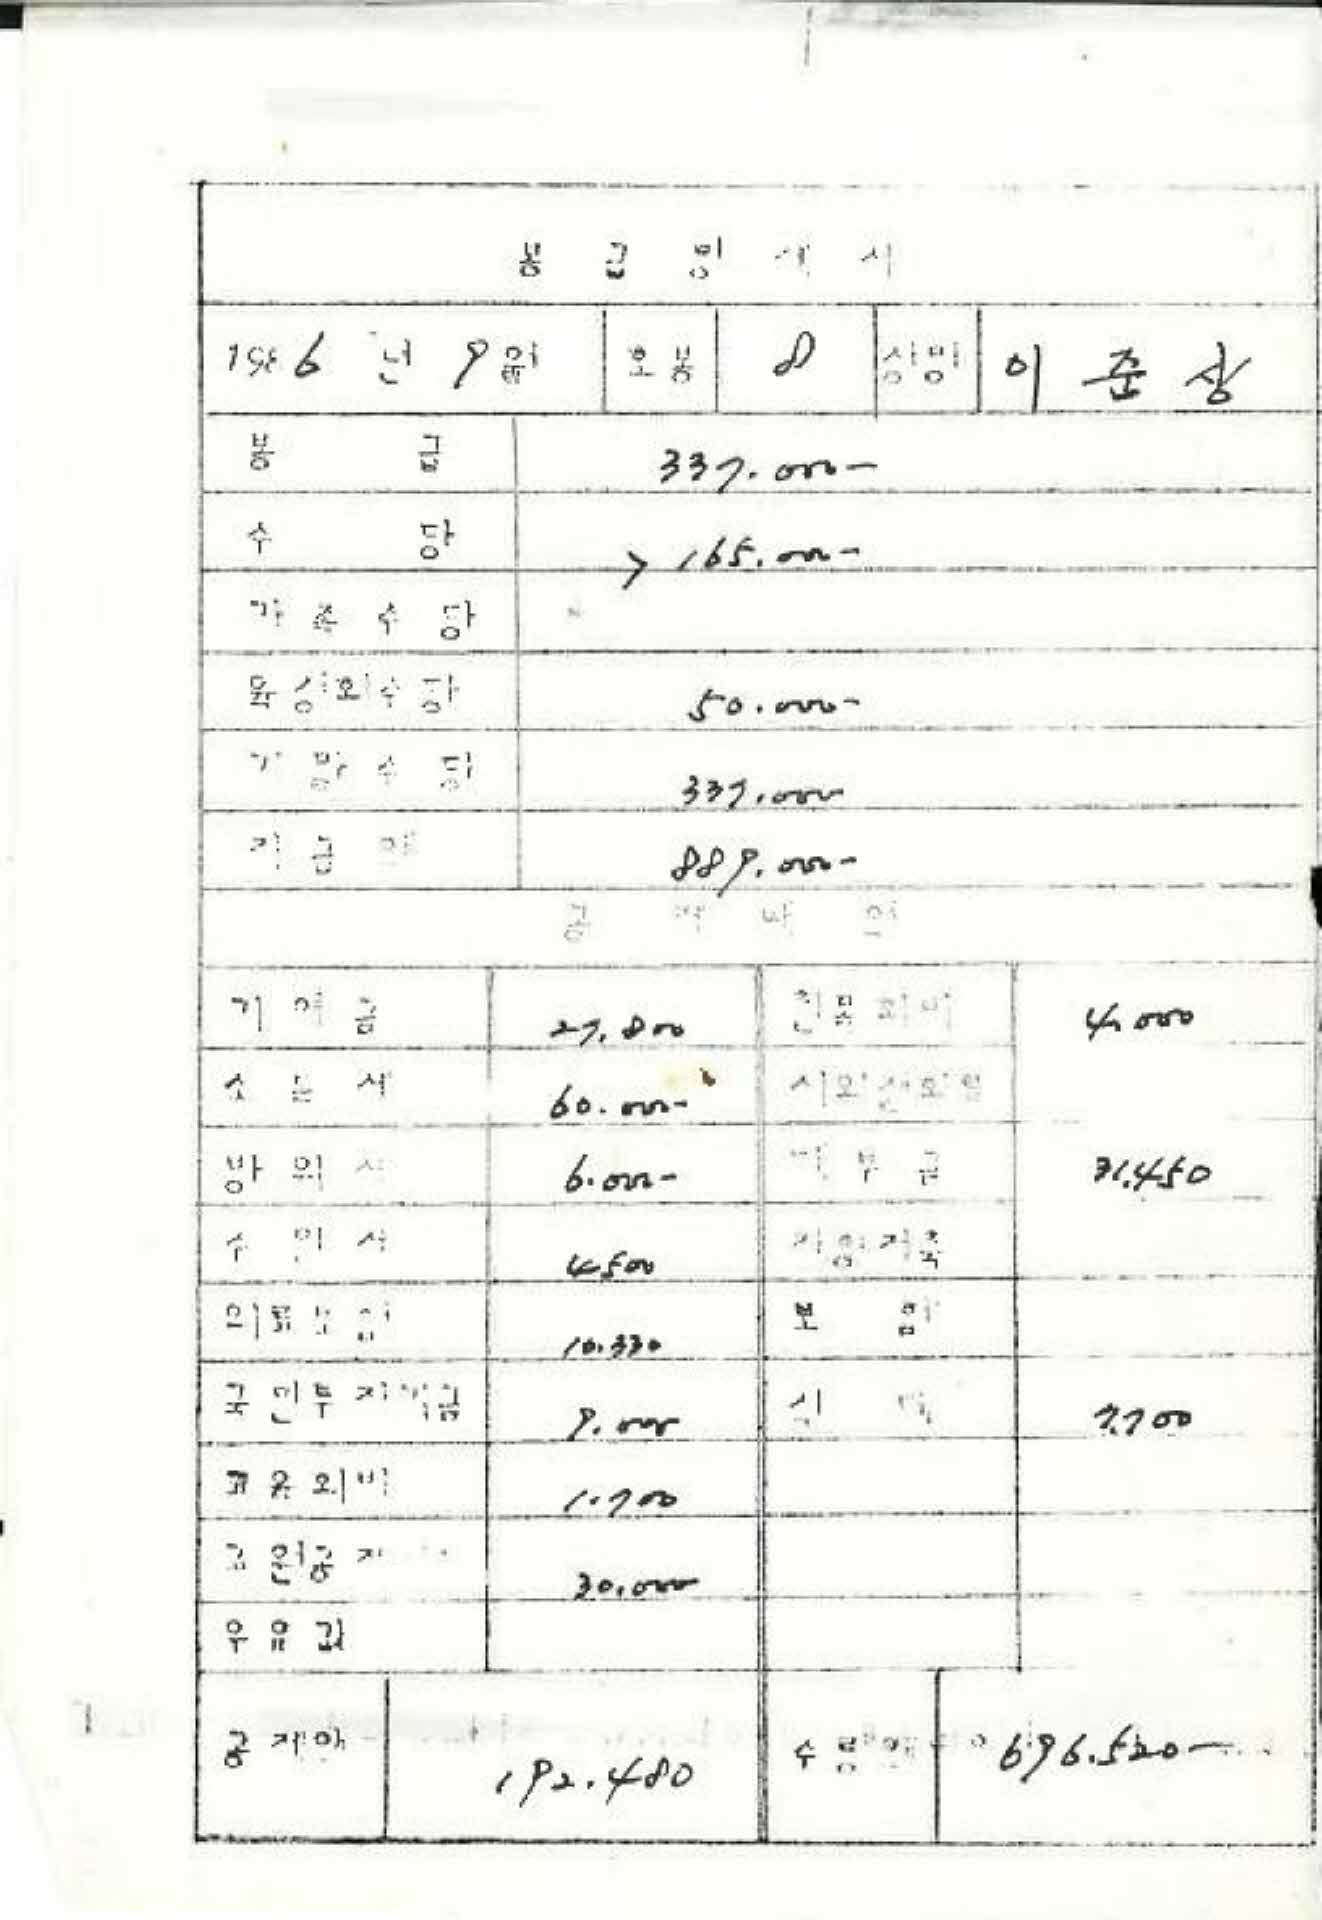 봉급명세서
1986년 9월 호봉 8 성명 이준상
봉급 337.000-
수당 > 165.000-
가족수당
육성회수당 50.000-
기말수당 337.000
지급액 889.000-
공제내역
기여금 27.800 친목회비 4.000
소득세 60.000-
방위세 6.000- 대부금 31.450
주민세 4500
의료보험 10.330
국민투자기금 9.000 7.700
교육회비 1.700
교원공제 30.000
우유값
공제액 192.480 수령액 696.520-